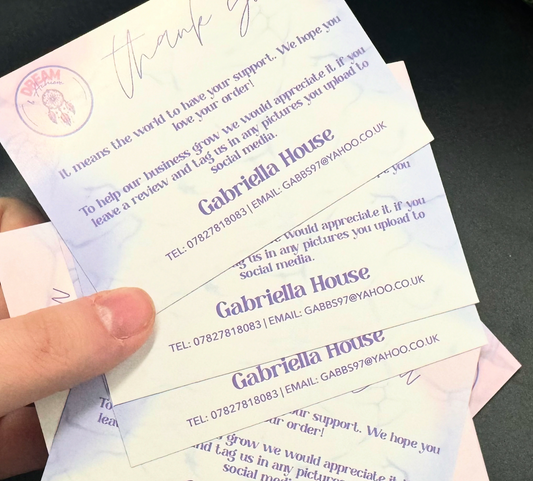 thank
DREAM
It means the world to have your support. We hope you
love your order!
To help our business grow we would appreciate it if you
leave a review and tag us in any pictures you upload to
social media.
Gabriella House
TEL: 07827818083 | EMAIL: GABBS97@YAHOO.CO.UK
you
would appreciate it if you
us in any pictures you upload to
social media.
Gabriella House
TEL: 07827818083 | EMAIL: GABBS97@YAHOO.CO.UK
Gabriella House
TEL: 07827818083 | EMAIL: GABBS97@YAHOO.CO.UK
To
support. We hope you
order!
grow we would appreciate it
tag us in any pictures
social